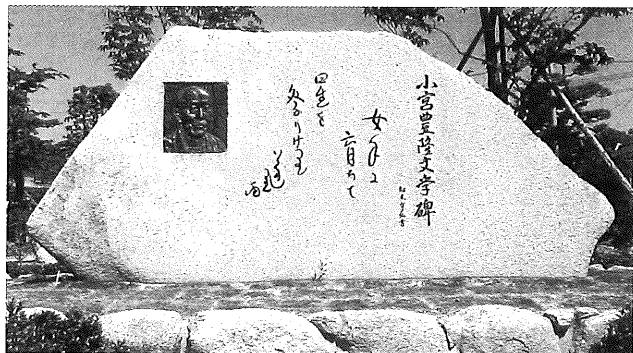 小宮豊隆文学碑
女手に
育ちて
星を
祭りけり
蓬里雨